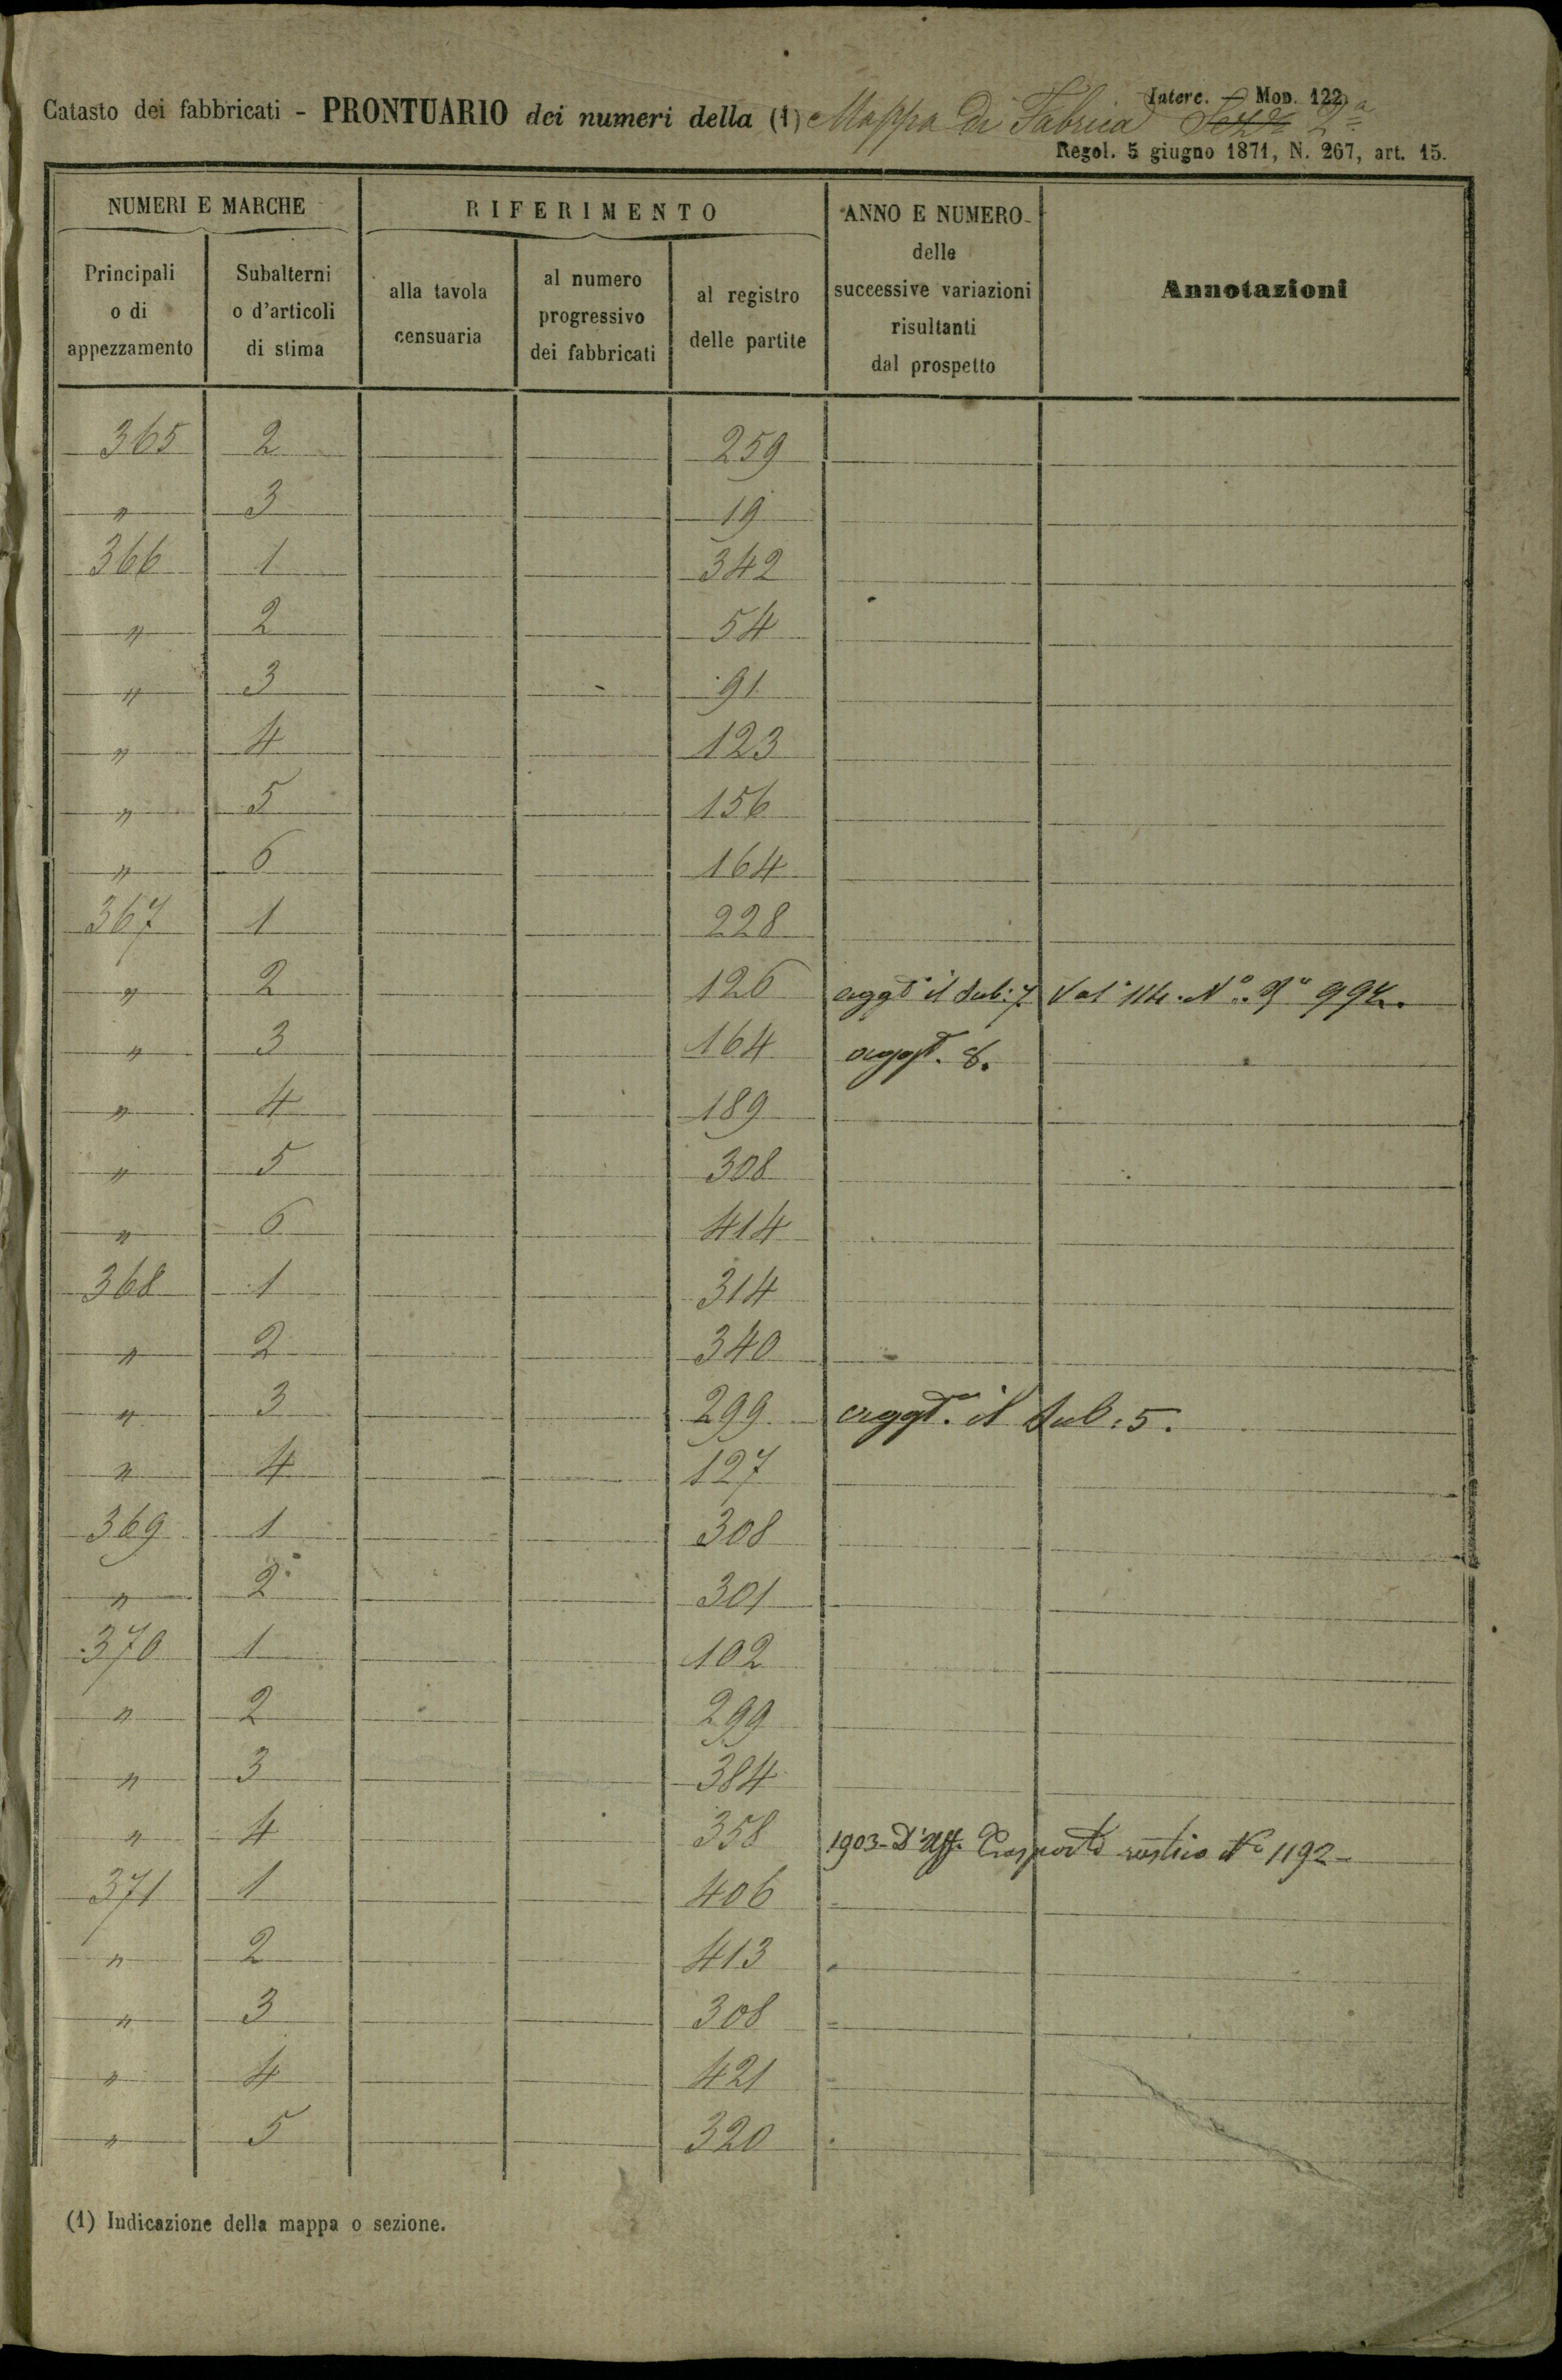 Interc. — Mod. 122
Catasto dei fabbricati - PRONTUARIO dei numeri della (1) Mappa di Fabrica Sez.e 2a
Regol. 5 giugno 1871, N. 267, art. 15.
NUMERI E MARCHE RIFERIMENTO ANNO E NUMERO delle successive variazioni risultanti dal prospetto Annotazioni
Principali o di appezzamento Subalterni o d'articoli di stima alla tavola censuaria al numero progressivo dei fabbricati al registro delle partite
365 2 259
" 3 19
366 1 342
" 2 54
" 3 91
" 4 123
" 5 156
" 6 164
367 1 228
" 2 126 aggto il sub: 7.
" 3 164 aggto. 8.
" 4 189
" 5 308
" 6 414
368 1 314
" 2 340
" 3 299 aggto. il sub: 5.
" 4 127
369 1 308
" 2 301
370 1 102
" 2 299
" 3 384
" 4 358 1903 - D'Uff. Trasporto rustico No 1192 -
371 1 406
" 2 413
" 3 308
" 4 421
" 5 320
(1) Indicazione della mappa o sezione.